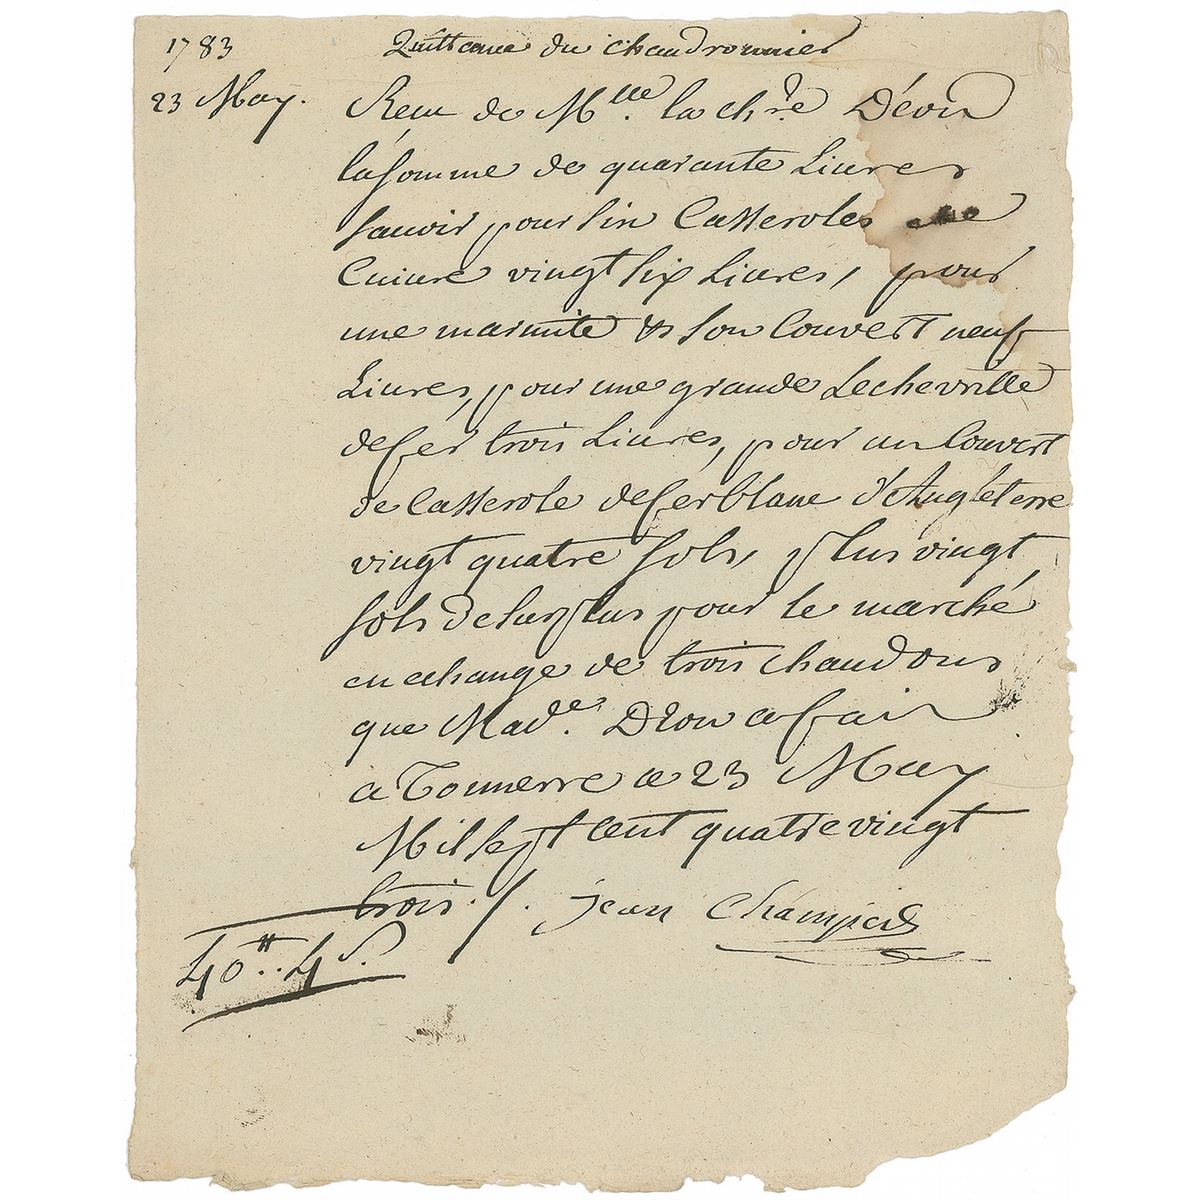 1783 Quittance du chaudronnier
23 May. Reçu de Mlle. la chre. Déon
la somme de quarante Livres
savoir pour six Casseroles de
Cuivre vingt six Livres, pour
une marmite & son Couvert neuf
Livres, pour une grande Lechevrille
de fer trois Livres, pour un Couvert
de Casserole de fer blanc d'Angleterre
vingt quatre sols, plus vingt
sols de surplus pour le marché
en echange de trois chaudrons
que Made. Déon a fait
a Tonnerre ce 23 May
Mil sept Cent quatre vingt
trois ./. jean Champied
40tt.. 4s.